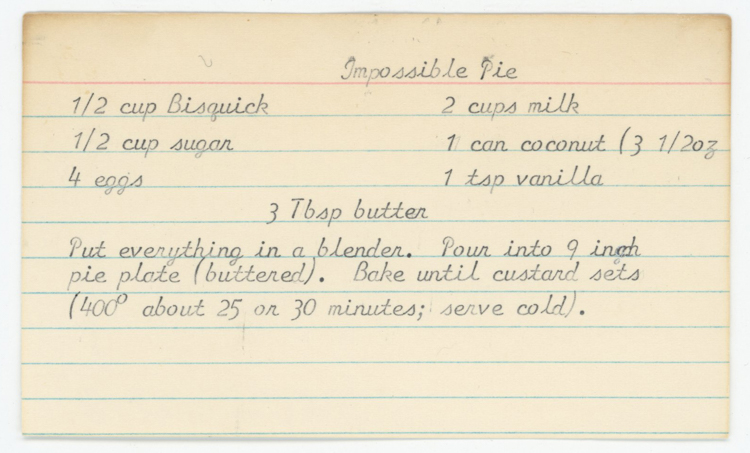 Impossible Pie
1/2 cup Bisquick 2 cups milk
1/2 cup sugar 1 can coconut (3 1/2oz
4 eggs 1 tsp vanilla
3 Tbsp butter
Put everything in a blender. Pour into 9 inch
pie plate (buttered). Bake until custard sets
(400° about 25 or 30 minutes; serve cold).